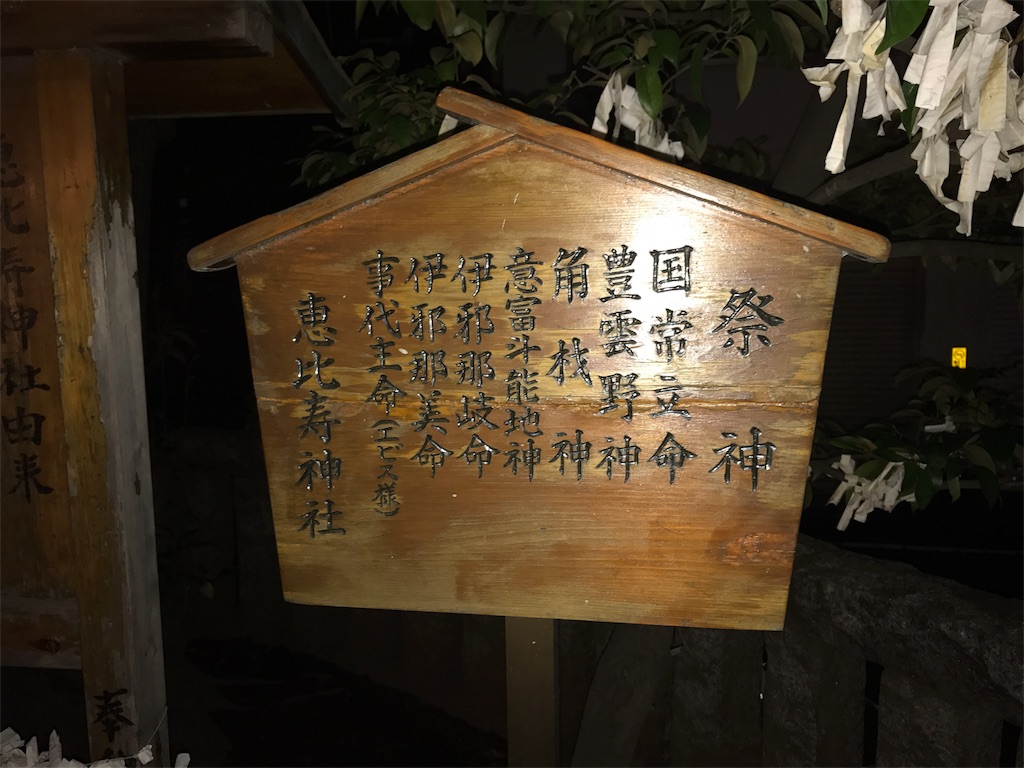 祭神
国常立命
豊雲野神
角杙神
意富斗能地神
伊邪那岐命
伊邪那美命
事代主命(エビス様)
恵比寿神社
恵比寿神社由来
奉